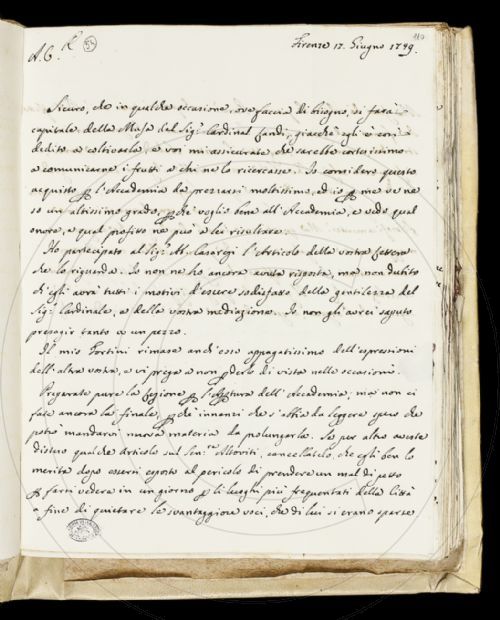 110
A. C. R. 54
Firenze 17. Giugno 1749.
Sicuro, che in qualche occasione, ove faccia di bisogno, si farà
capitale della Musa del Sig.r Cardinal Landi, giacchè egli è così
dedito a coltivarla, e voi mi assicurate che sarebbe cortesissimo
a comunicarne i frutti a chi ne lo ricercasse. Io considero questo
acquisto p l'Accademia da prezzarsi moltissimo, ed io p me ve ne
so un altissimo grado, pchè voglio bene all'Accademia, e vedo qual
onore, e qual profitto ne può a lei risultare.
Ho partecipato al Sig.r Ab. Casaregi l'Articolo della vostra lettera
che lo riguarda. Io non ne ho ancora avuta risposta, ma non dubito
ch'egli avrà tutti i motivi d'essere sodisfatto della gentilezza del
Sig.r Cardinale, e della vostra mediazione. Io non gli avrei saputo
presagir tanto a un pezzo.
Il mio Fortini rimase anch'esso appagatissimo dell'espressioni
dell'altra vostra, e vi prega a non pderlo di vista nelle occasioni.
Preparate pure la lezione p l'Aptura dell'Accademia, ma non ci
fate ancora la finale, pchè innanzi che s'abbia da leggere spero che
potrò mandarvi nuova materia da polungarla. Se per altro avete
disteso qualche Articolo sul Sen.re Altoviti, cancellatelo, chè egli ben lo
merita dopo essersi esposto al pericolo di prendere un mal di petto
p farsi vedere in un giorno p li luoghi più frequentati della Città
a fine di quietare le svantaggiose voci, che di lui si erano sparse